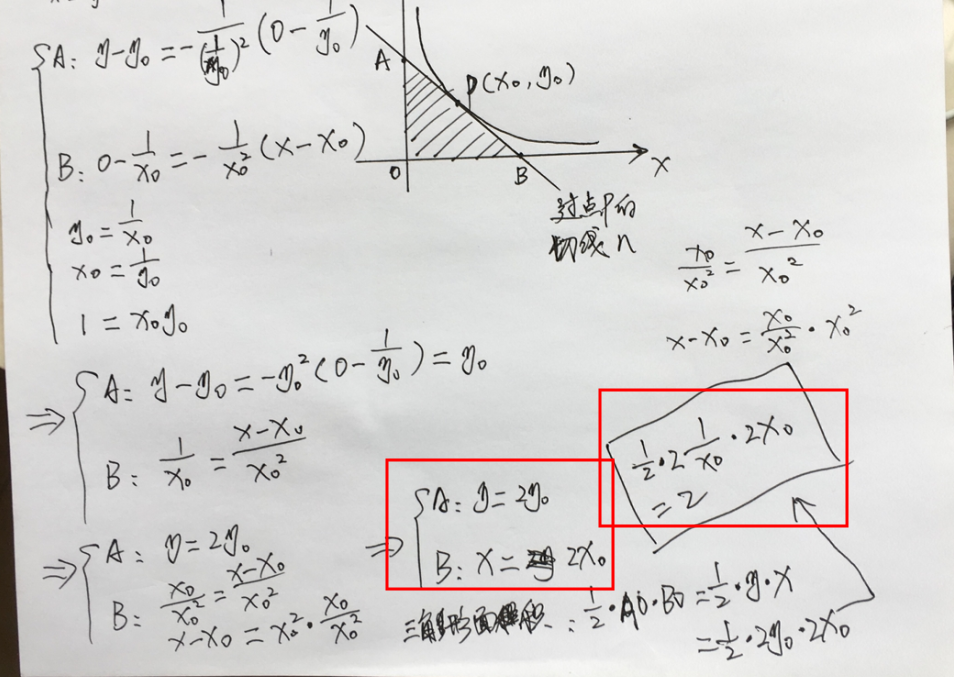 A: y-y₀=-1/(1/y₀)²(0-1/y₀)
B: 0-1/x₀=-1/x₀²(x-x₀)
y₀=1/x₀
x₀=1/y₀
1=x₀y₀
A
P(x₀,y₀)
O
B
X
过点P的
切线n
x₀/x₀²=(x-x₀)/x₀²
x-x₀=x₀/x₀²·x₀²
⇒
A: y-y₀=-y₀²(0-1/y₀)=y₀
B: 1/x₀=(x-x₀)/x₀²
⇒
A: y=2y₀
B: x₀/x₀²=(x-x₀)/x₀²
x-x₀=x₀²·x₀/x₀²
⇒
A: y=2y₀
B: x=2x₀
1/2·2 1/x₀·2x₀
=2
三角形面积:1/2·AO·BO=1/2·y·x
=1/2·2y₀·2x₀